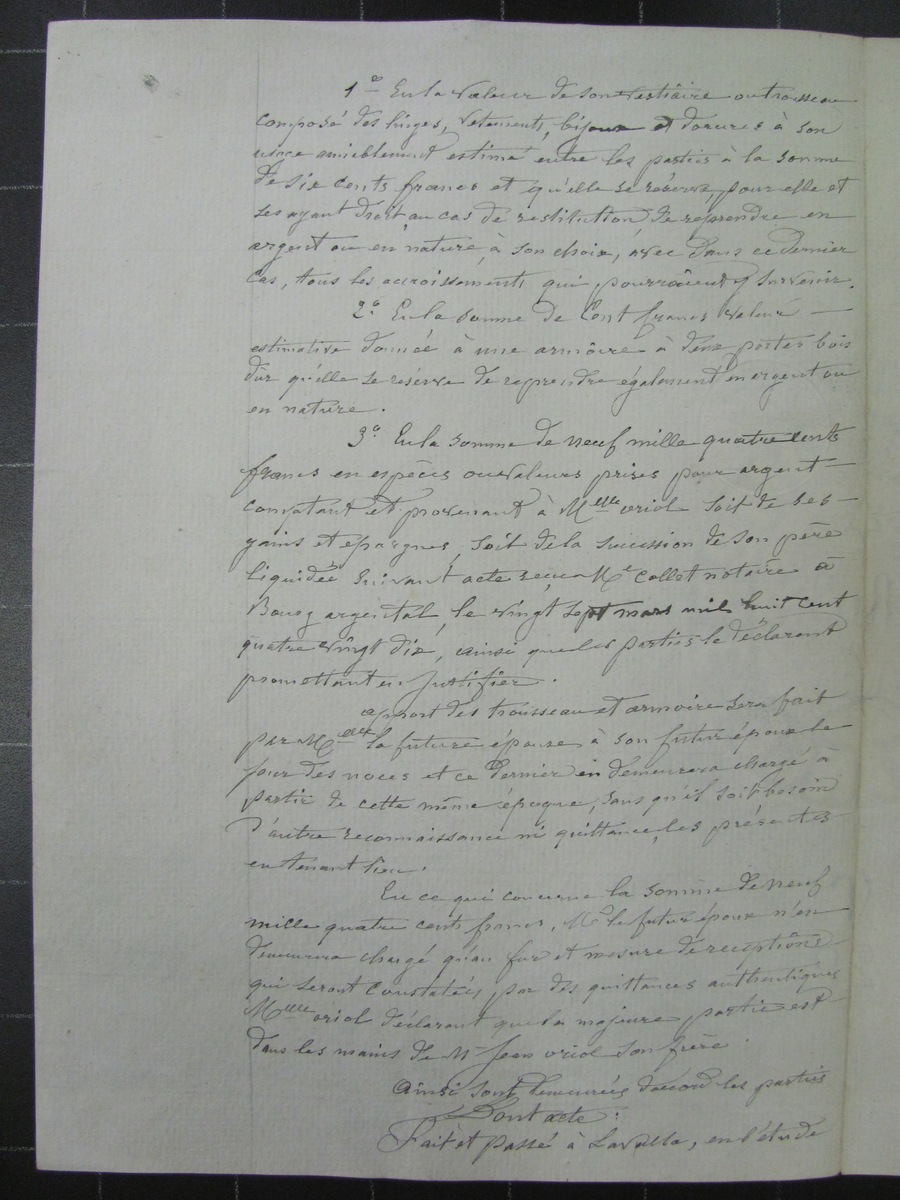 1° En la valeur de son vestiaire ou trousseau
composé des linges, vetements, bijoux et dorures à son
usage amiablement estimé entre les parties à la somme
de six cents francs et qu'elle se réserve, pour elle et
ses ayant droit, au cas de restitution, de reprendre en
argent ou en nature, à son choix, avec dans ce dernier
cas, tous les accroissements qui pourraient y survenir.
2° En la somme de Cent francs valeur —
estimative donnée à une armoire à deux portes bois
dur qu'elle se réserve de reprendre également en argent ou
en nature.
3° En la somme de neuf mille quatre cents
francs en espèces ou valeurs prises pour argent —
comptant et provenant à Melle oriol soit de ses —
gains et epargnes, soit de la succession de son père
liquidée suivant acte reçu Me collet notaire à
Bourg argental, le vingt sept mars mil huit cent
quatre vingt dix, ainsi que les parties le déclarent
promettant en justifier.
apport des trousseau et armoire sera fait
par Melle la future épouse à son futur époux le
jour des noces et ce dernier en demeurera chargé à
partir de cette même époque, sans qu'il soit besoin
d'autre reconnaissance ni quittance, les présentes
en tenant lieu.
En ce qui concerne la somme de neuf
mille quatre cents francs, Mr le futur époux n'en
demeurera chargé qu'au fur et mesure de receptions
qui seront constatées, par des quittances authentiques
Melle oriol déclarant que la majeure partie est
dans les mains de Mr Jean oriol son frère.
Ainsi sont demeurées d'accord les parties
Dont acte:
Fait et passé à Lavalla, en l'étude